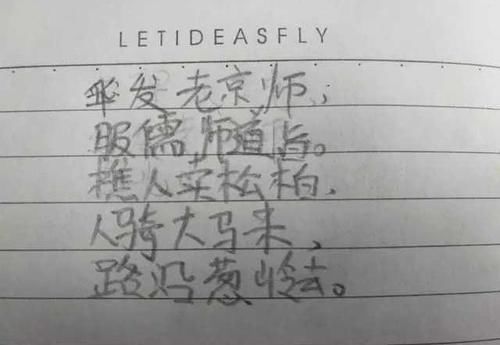 LETIDEASFLY
发老京师，
服儒师道旨。
樵人卖松柏，
人骑大马来、
路沿葱岭去。